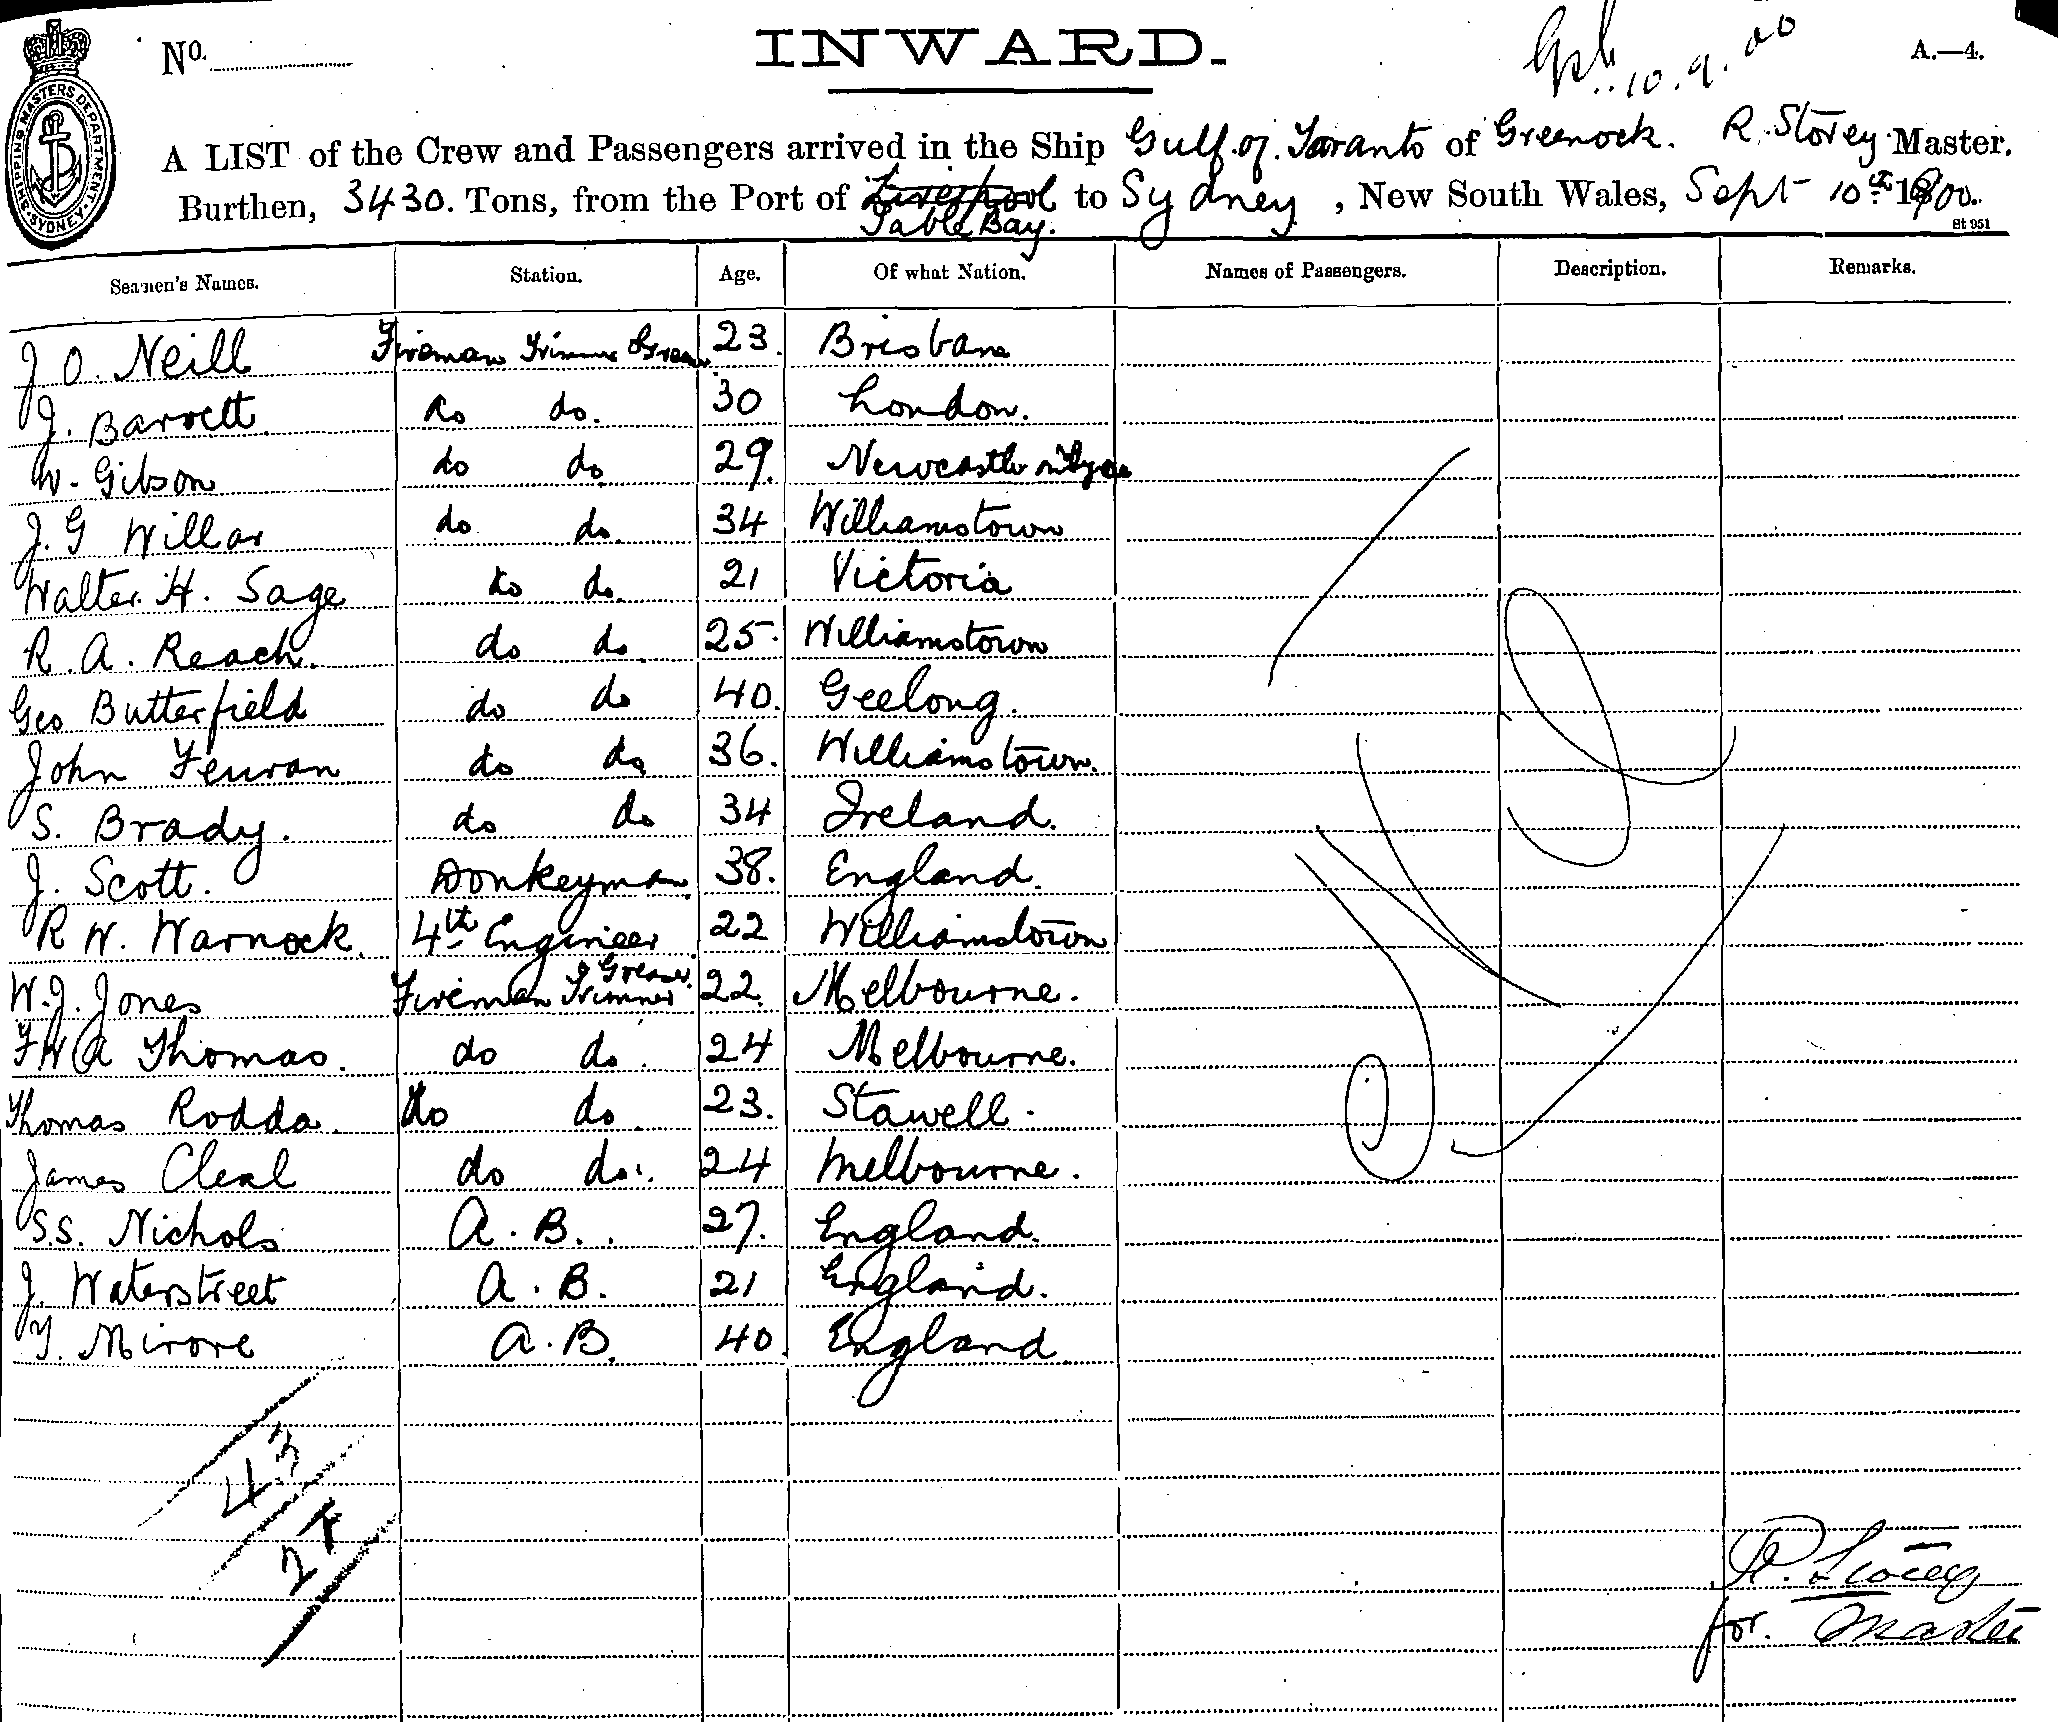 No. INWARD. 10.9.00 A.—4.
SHIPPING MASTERS DEPARTMENT SYDNEY
A LIST of the Crew and Passengers arrived in the Ship Gulf of Taranto of Greenock. R. Storey Master.
Burthen, 3430. Tons, from the Port of Liverpool to Sydney, New South Wales, Sept 10th 1900.
Table Bay.
St 951
Seamen's Names. Station. Age. Of what Nation. Names of Passengers. Description. Remarks.
J O. Neill Fireman Trimmer & Greaser 23. Brisbane
J. Barrett do do. 30 London.
W. Gibson do do 29. Newcastle
J. G Willar do do. 34 Williamstown
Walter H. Sage do do. 21 Victoria
R. A. Reach. do do 25. Williamstown
Geo Butterfield do do 40. Geelong.
John do do 36. Williamstown.
S. Brady. do do 34 Ireland.
J. Scott. Donkeyman 38. England.
R W. Warnock. 4th Engineer 22 Williamstown
W. J. Jones Fireman Trimmer & Greaser. 22. Melbourne.
F W A Thomas. do do. 24 Melbourne.
Thomas Rodda. do do. 23. Stawell.
James Cleal do do. 24 Melbourne.
S.S. Nichols A. B. 27. England.
J. Waterstreet A. B. 21 England.
Y. Mirore A. B. 40. England
43
R. Storey
for. Master